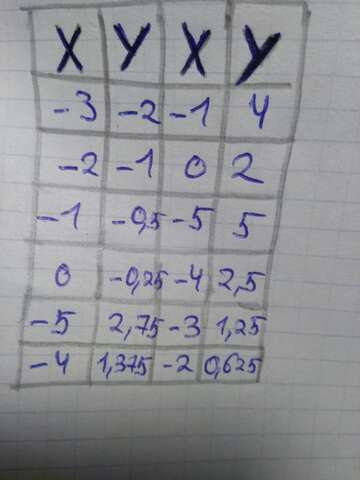 X Y X Y
-3 -2 -1 4
-2 -1 0 2
-1 -0,5 -5 5
0 -0,25 -4 2,5
-5 2,75 -3 1,25
-4 1,375 -2 0,625